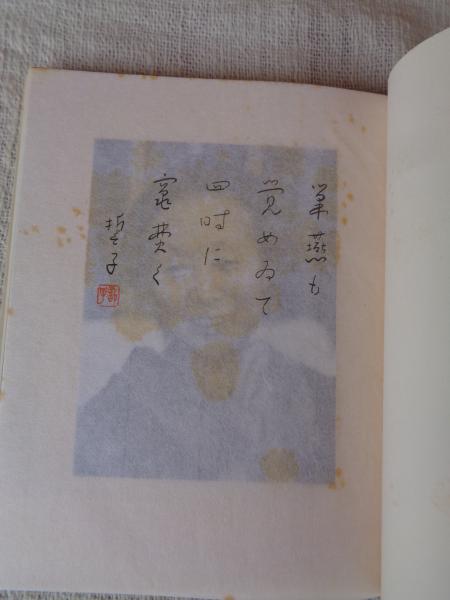 巣燕も
覚めゐて
四時に
竈焚く
哲子